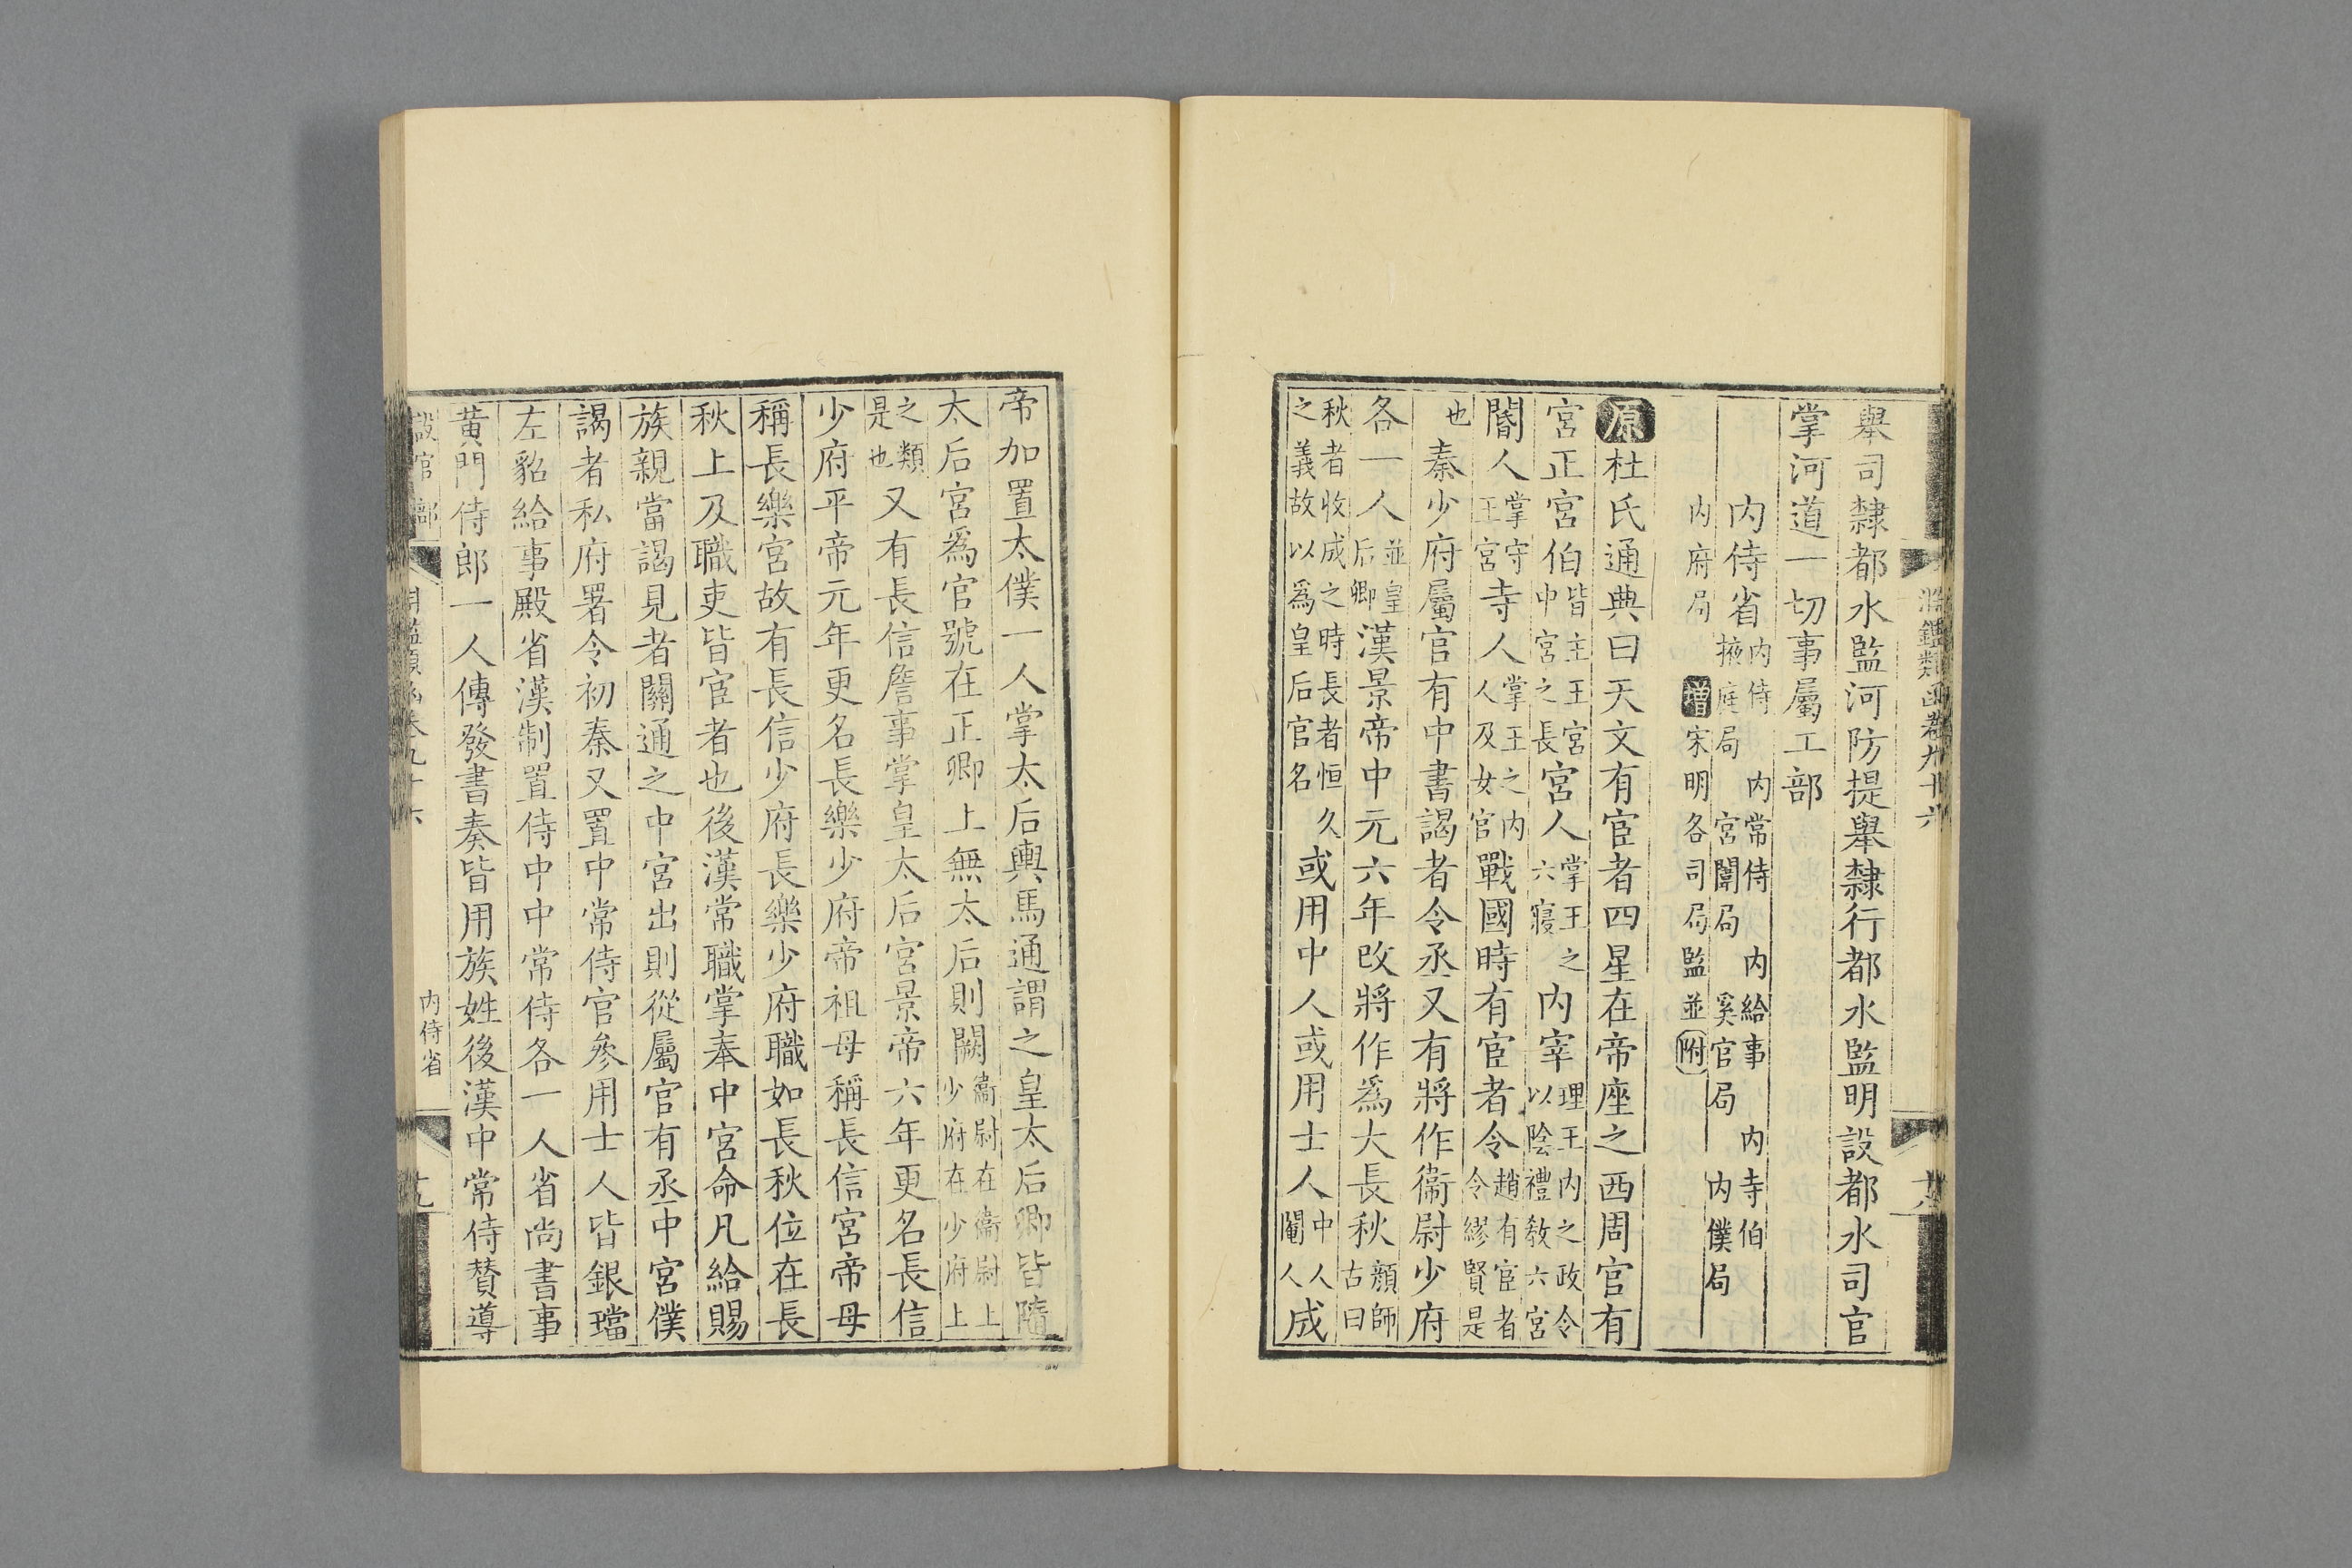 淵鑑類函卷九十六
十八
舉司隸都水監河防提舉隸行都水監明設都水司官
掌河道一切事屬工部
内侍省内侍 内常侍 内給事 内寺伯
掖庭局 宮闈局 奚官局 内僕局
内府局 增宋明各司局監並附
原杜氏通典曰天文有宦者四星在帝座之西周官有
宮正宮伯皆主王宮中宮之長宮人掌王之六寢内宰理王内之政令以陰禮敎六宮
閽人掌守王宮寺人掌王之内人及女官戰國時有宦者令趙有宦者令繆賢是
也秦少府屬官有中書謁者令丞又有將作衞尉少府
各一人並皇后卿漢景帝中元六年改將作爲大長秋顔師古曰
秋者收成之時長者恒久之義故以爲皇后官名或用中人或用士人中人閹人成
帝加置太僕一人掌太后輿馬通謂之皇太后卿皆隨
太后宮爲官號在正卿上無太后則闕衞尉在衞尉上少府在少府上
之類是也又有長信詹事掌皇太后宮景帝六年更名長信
少府平帝元年更名長樂少府帝祖母稱長信宮帝母
稱長樂宮故有長信少府長樂少府職如長秋位在長
秋上及職吏皆宦者也後漢常職掌奉中宮命凡給賜
族親當謁見者關通之中宮出則從屬官有丞中宮僕
謁者私府署令初秦又置中常侍官參用士人皆銀璫
左貂給事殿省漢制置侍中中常侍各一人省尚書事
黃門侍郎一人傳發書奏皆用族姓後漢中常侍賛導
設官部
内侍省
十九